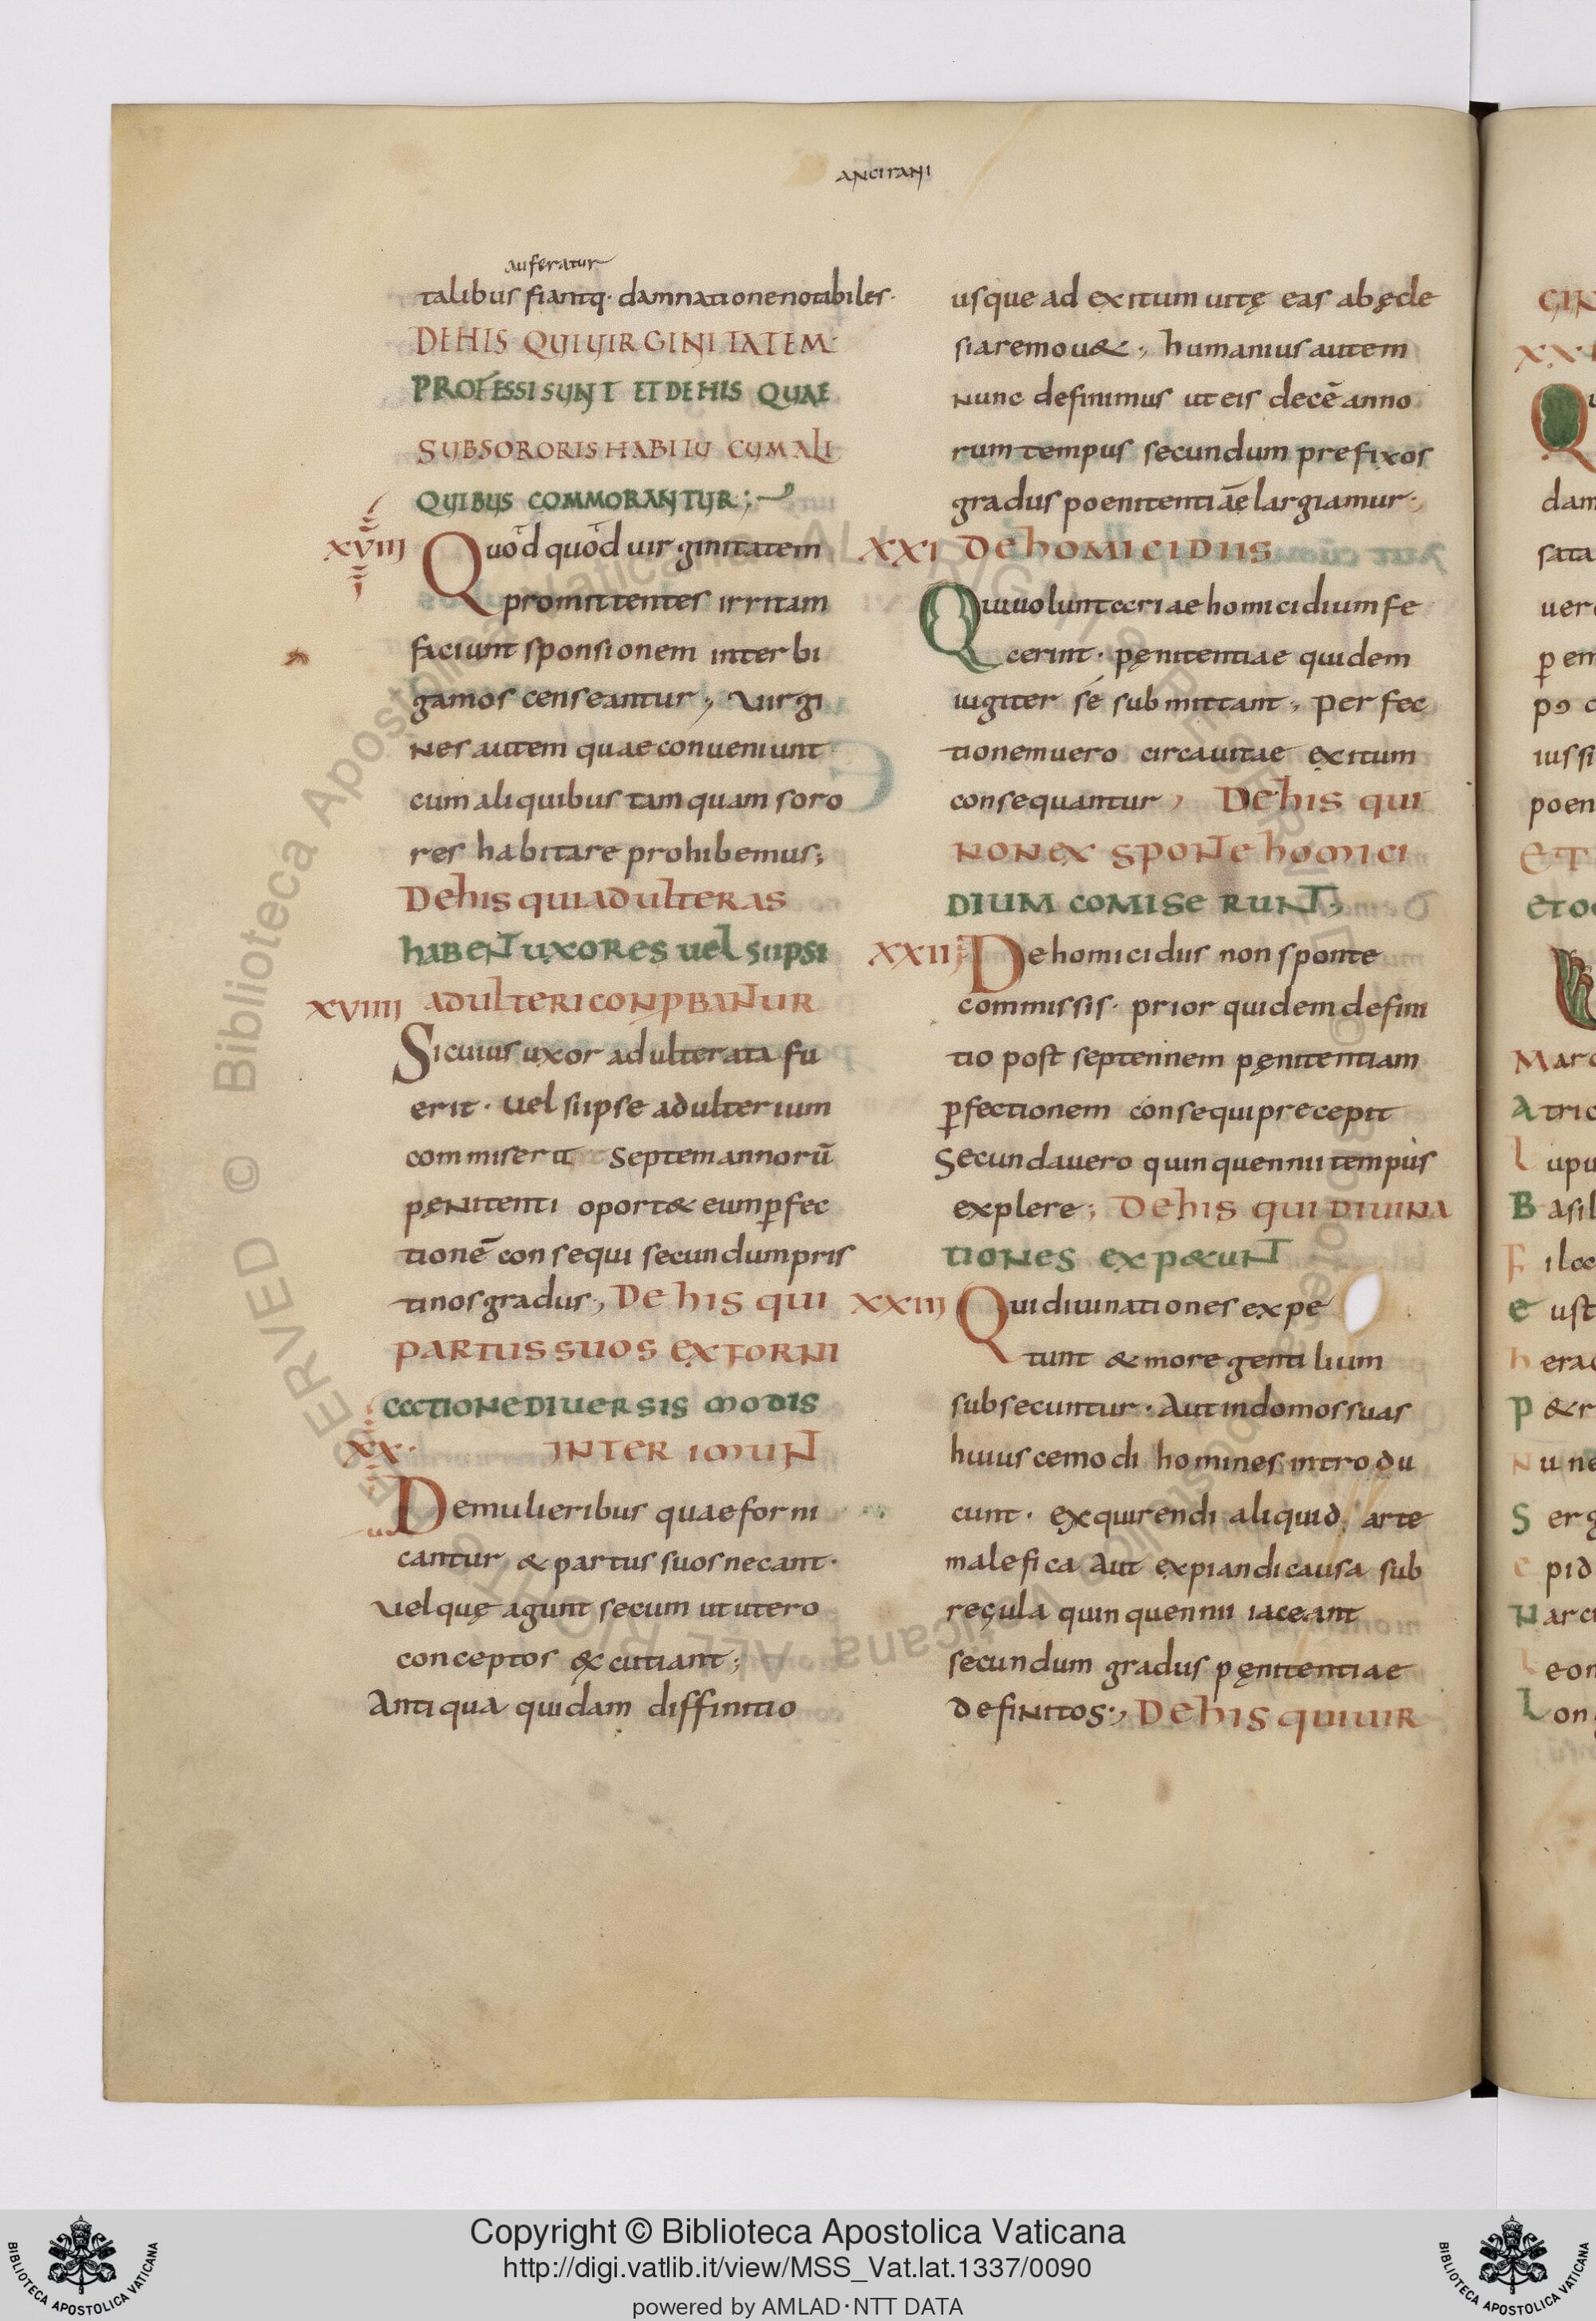 ANCIRANI
auferatur
talibus fiantq· damnatione notabiles·
DE HIS QUI UIRGINITATEM·
PROFESSI SUNT ET DE HIS QUAE
SUB SORORIS HABITU CUM ALI
QUIBUS COMMORANTUR;
XVIII Quod quod uirginitatem
promittentes irritam
faciunt sponsionem inter bi
gamos censeantur; Uirgi
nes autem quae conueniunt
cum aliquibus tamquam soro
res habitare prohibemus;
De his qui adulteras
habent uxores uel si ipsi
XVIIII adulteri conpbantur
Si cuius uxor adulterata fu
erit· uel si ipse adulterium
commiserit Septem annorū
pęnitenti oport& eum ꝑfec
tionē consequi secundum pris
tinos gradus; De his qui
partus suos ex forni
cactione diuersis modis
XX· INTERIMUNT
De mulieribus quae forni
cantur & partus suos necant·
uel quę agunt secum ut utero
conceptos excutiant;
Antiqua quidam diffinitio
usque ad exitum uitę eas ab ęcle
sia remou&; humanius autem
nunc definimus ut eis decē anno
rum tempus secundum prefixos
gradus poenitentiāę largiamur·
XXI De homicidiis
Qui uoluntccriae homicidium fe
cerint· pęnitentiae quidem
iugiter sé submittant; perfec
tionem uero circa uitae exitum
consequantur; De his qui
non ex sponte homici
dium comiserunt;
XXII De homicidiis non sponte
commissis· prior quidem defini
tio post septennem pęnitentiam
ꝑfectionem consequi precepit
Secunda uero quinquennii tempus
explere; De his qui diuina
tiones exp&unt
XXIII Qui diuinationes expe
tunt & more gentilium
subsecuntur· Aut in domos suas
huiuscemodi homines introdu
cunt· exquirendi aliquid arte
malefica aut expiandi causa sub
regula quinquennii iaceant
secundum gradus pęnitentiae
definitos; De his qui uir
GIN
XX·
Q
dam
sata
uer
ꝑ em
c
iussi
poen
ET
et o
Marc
A tric
L upu
B asil
F iloc
E ust
h erac
P & r
N une
S erg
E pid
N arci
L eon
L on
Copyright © Biblioteca Apostolica Vaticana
http://digi.vatlib.it/view/MSS_Vat.lat.1337/0090
powered by AMLAD·NTT DATA
BIBLIOTECA APOSTOLICA VATICANA
BIBLIOTECA APOSTOLICA VATICANA